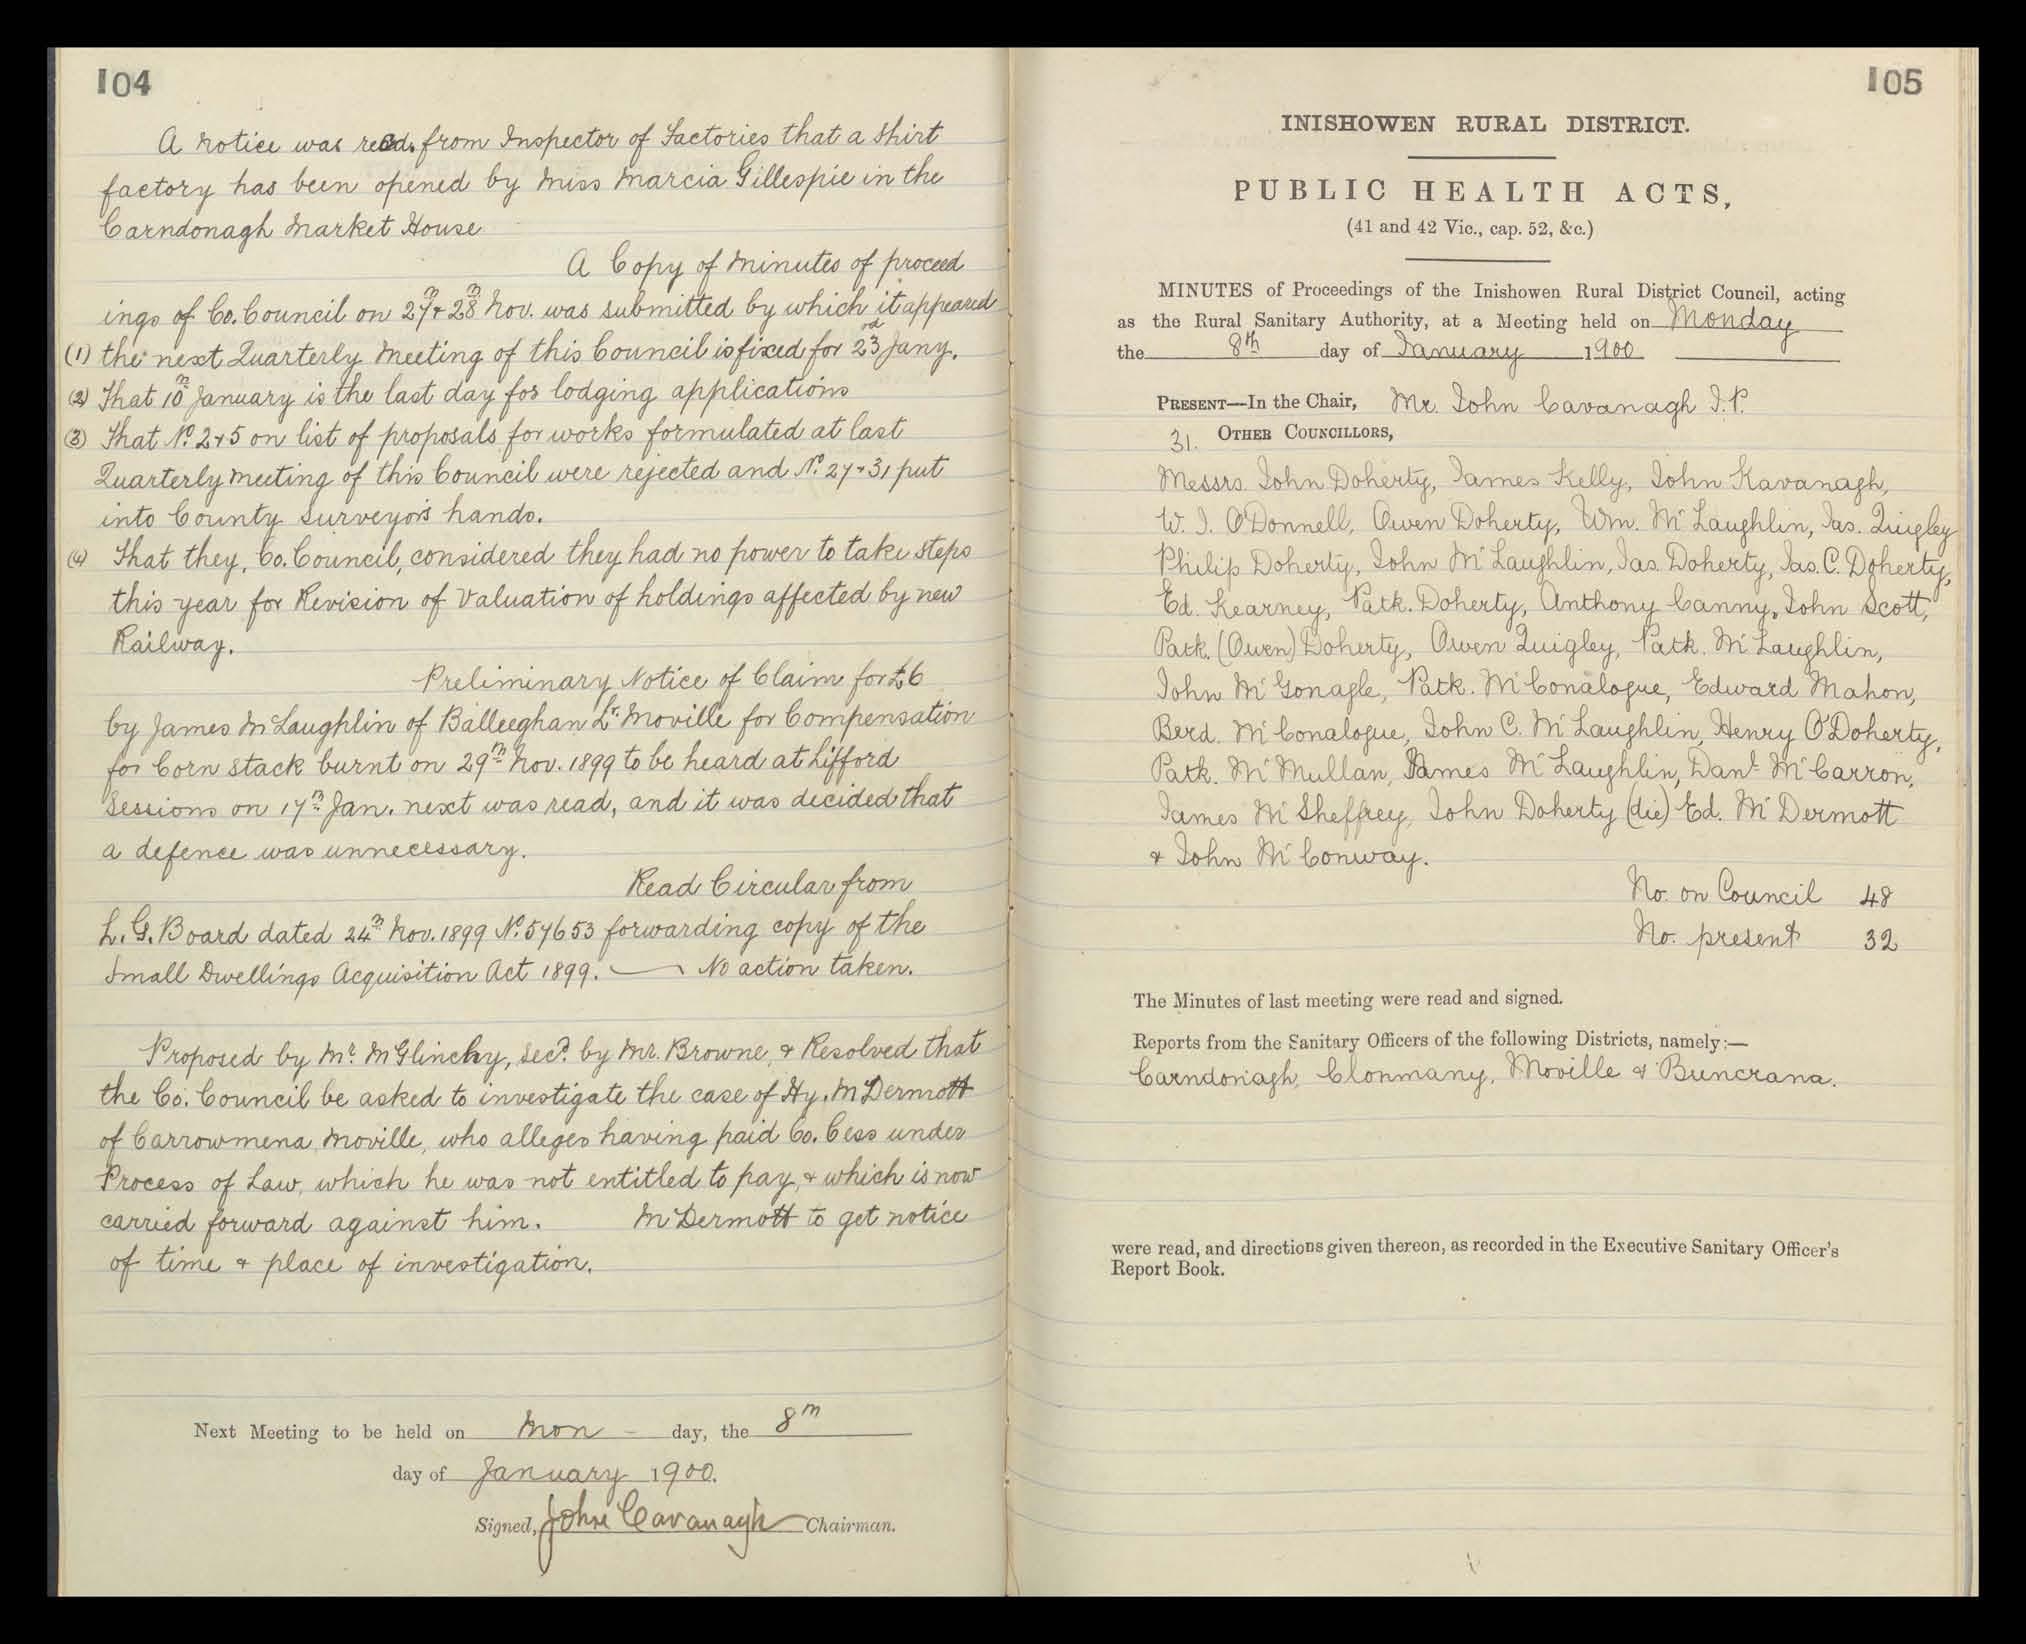 104
A notice was recd. from Inspector of Factories that a Shirt
factory has been opened by Miss Marcia Gillespie in the
Carndonagh Market House
A Copy of Minutes of proceed
ings of Co. Council on 27th & 28th Nov. was submitted by which it appeared
(1) the next Quarterly Meeting of this Council is fixed for 23rd Jany.
(2) That 10th January is the last day for lodging applications
(3) That No. 2 & 5 on list of proposals for works formulated at last
Quarterly Meeting of this Council were rejected and No. 27 & 31 put
into County Surveyor's hands.
(4) That they, Co. Council, considered they had no power to take steps
this year for Revision of Valuation of holdings affected by new
Railway.
Preliminary Notice of Claim for £6
by James McLaughlin of Balleeghan Lr. Moville for Compensation
for Corn stack burnt on 29th Nov. 1899 to be heard at Lifford
Sessions on 17th Jan. next was read, and it was decided that
a defence was unnecessary.
Read Circular from
L. G. Board dated 24th Nov. 1899 No. 57653 forwarding copy of the
Small Dwellings Acquisition Act 1899. — No action taken.
Proposed by Mr. McGlinchy, Secd. by Mr. Browne, & Resolved that
the Co. Council be asked to investigate the case of Hy. McDermott
of Carrowmena, Moville, who alleges having paid Co. Cess under
Process of Law, which he was not entitled to pay, & which is now
carried forward against him. McDermott to get notice
of time & place of investigation.
Next Meeting to be held on Mon - day, the 8th
day of January 1900.
Signed, John Cavanagh Chairman.
105
INISHOWEN RURAL DISTRICT.
PUBLIC HEALTH ACTS,
(41 and 42 Vic., cap. 52, &c.)
MINUTES of Proceedings of the Inishowen Rural District Council, acting
as the Rural Sanitary Authority, at a Meeting held on Monday
the 8th day of January 1900
PRESENT—In the Chair, Mr. John Cavanagh J.P.
31. OTHER COUNCILLORS,
Messrs. John Doherty, James Kelly, John Kavanagh,
W. J. O'Donnell, Owen Doherty, Wm. McLaughlin, Jas. Quigley
Philip Doherty, John McLaughlin, Jas. Doherty, Jas. C. Doherty,
Ed. Kearney, Patk. Doherty, Anthony Canny, John Scott,
Patk. (Owen) Doherty, Owen Quigley, Patk. McLaughlin,
John McGonagle, Patk. McConalogue, Edward Mahon,
Berd. McConalogue, John C. McLaughlin, Henry O'Doherty,
Patk. McMullan, James McLaughlin, Danl. McCarron,
James McSheffrey, John Doherty (die) Ed. McDermott
& John McConway.
No. on Council 48
No. present 32
The Minutes of last meeting were read and signed.
Reports from the Sanitary Officers of the following Districts, namely:—
Carndonagh, Clonmany, Moville & Buncrana.
were read, and directions given thereon, as recorded in the Executive Sanitary Officer's
Report Book.